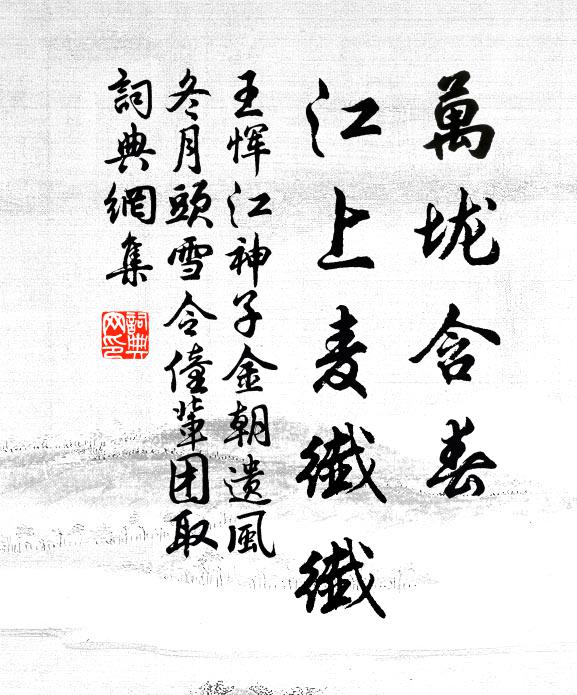 萬垅含春
江上麦纎纎
王惲江神子金朝遗風
冬月頭雪令僮輩团取
詞典網集
詞典网印